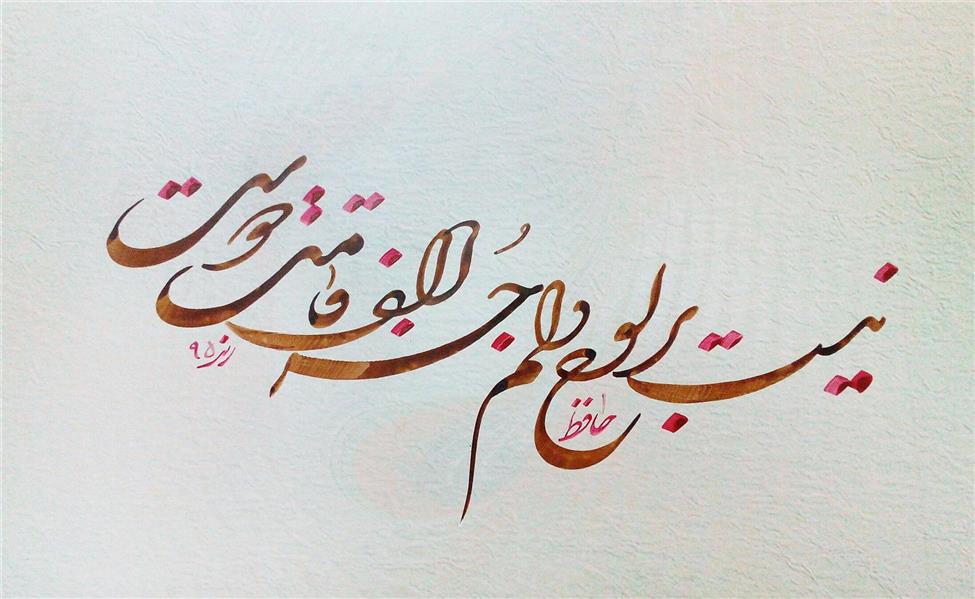 نیست بر لوح دلم جز الف قامت دوست
حافظ
۹۵